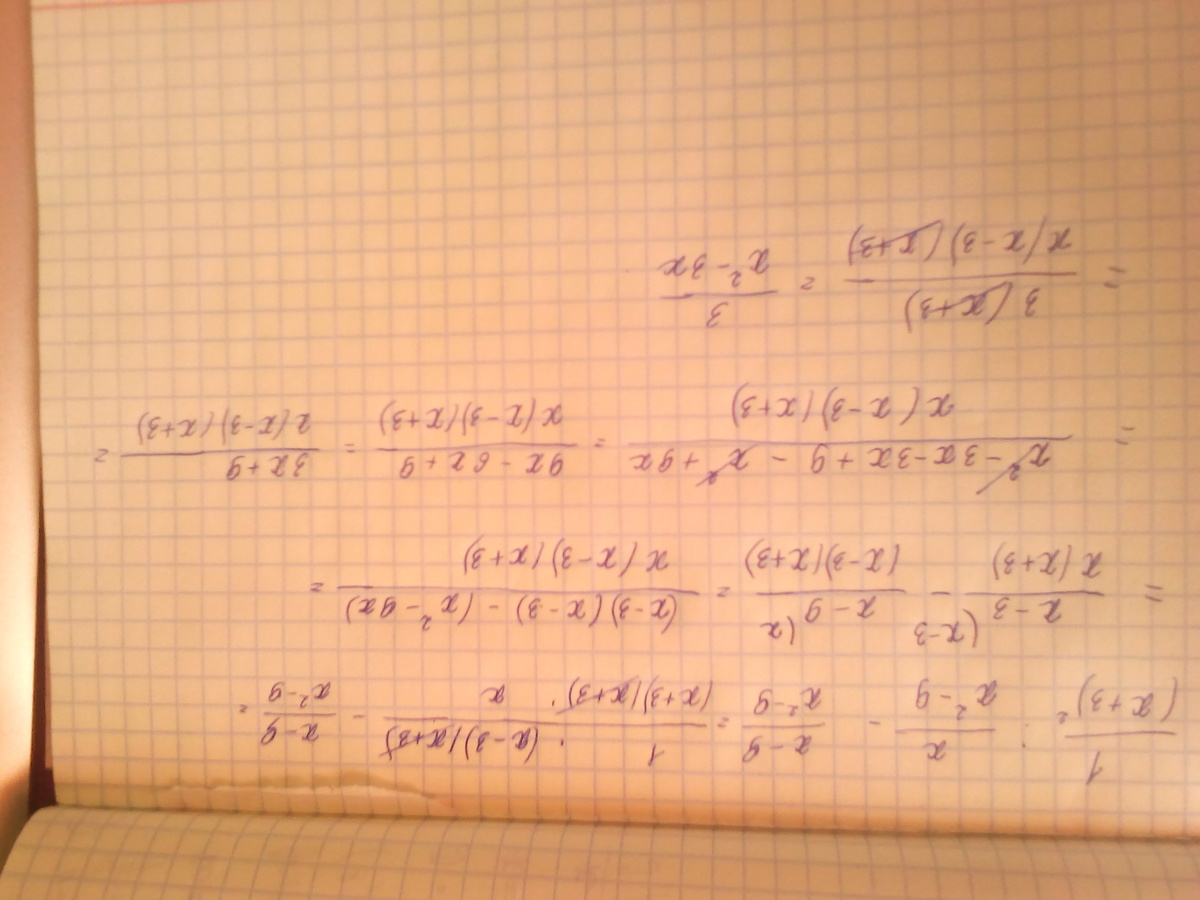 1/(x+3)² : x/(x²-9) - (x-9)/(x²-9) = 1/((x+3)(x+3)) · ((x-3)(x+3))/x - (x-9)/(x²-9) =
= (x-3)/(x(x+3)) (x-3 - (x-9)/((x-3)(x+3)) (x = ((x-3)(x-3) - (x²-9x))/(x(x-3)(x+3)) =
= (x²-3x-3x+9 - x²+9x)/(x(x-3)(x+3)) = (9x-6x+9)/(x(x-3)(x+3)) = (3x+9)/(x(x-3)(x+3)) =
= (3(x+3))/(x(x-3)(x+3)) = 3/(x²-3x)